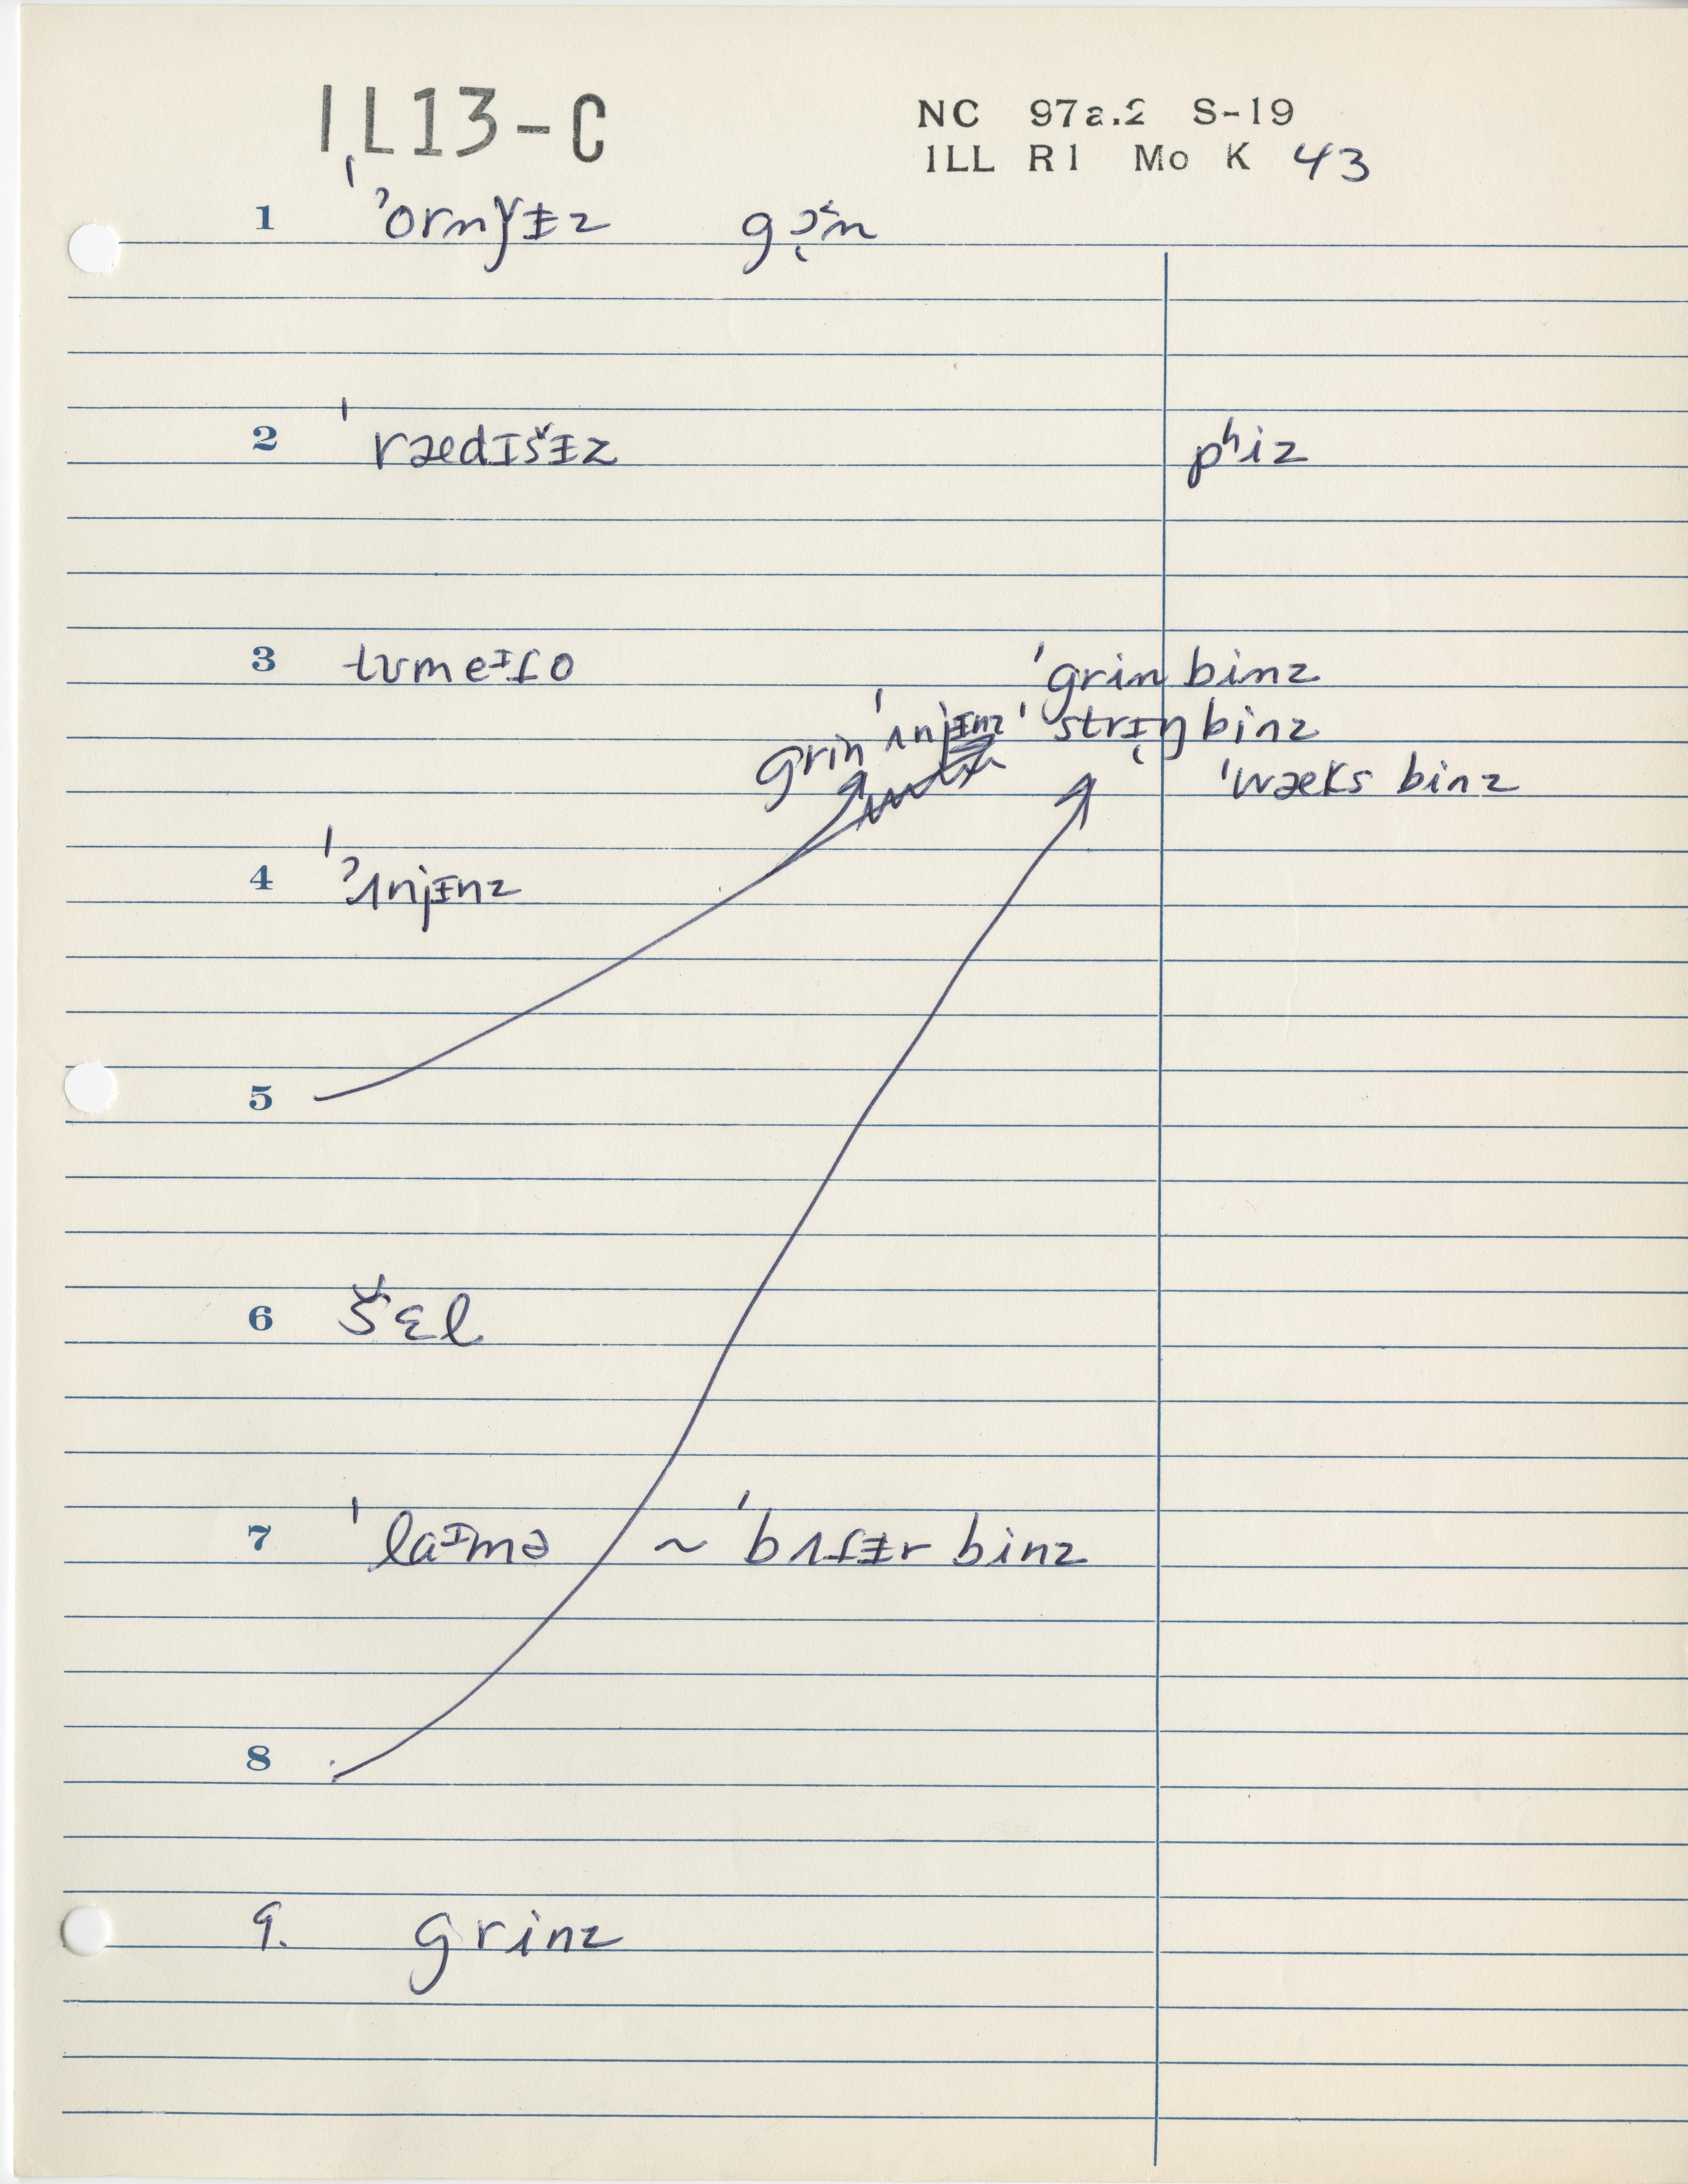 IL13-C
NC 97a.2 S-19
ILL R1 Mo K 43
1 ˈʔornǰɨz gɔ̜˂n
2 ˈrædɪšɨz pʰiz
3 tʊmeᶦɾo ˈgrin binz
grin ˈʌnjɨnz ˈstrɪ̜ŋ binz
ˈwæks binz
4 ˈʔʌnjɨnz
5
6 šɛl
7 ˈlaᶦmə ~ ˈbʌɾɨr binz
8
9. grinz